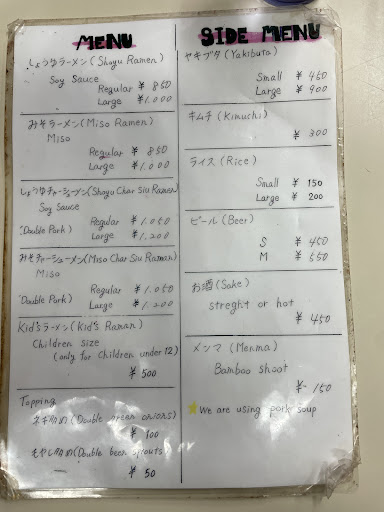 MENU
しょうゆラーメン(Shoyu Ramen)
Soy Sauce
Regular ¥ 850
Large ¥1.000
みそラーメン(Miso Ramen)
Miso
Regular ¥ 850
Large ¥1.000
しょうゆチャーシューメン(Shoyo Char Siu Ramen)
Soy Sauce
(Double Pork) Regular ¥1.050
Large ¥1.200
みそチャーシューメン(Miso Char Siu Raman)
Miso
(Double Pork) Regular ¥1.050
Large ¥1.200
Kid'sラーメン(Kid's Raman)
Children size
(only for Children under 12)
¥ 500
Topping
ネギ多め(Double green onions)
¥ 100
もやし多め(Double bean sprouts)
¥ 50
SIDE MENU
ヤキブタ(Yakibuta)
Small ¥ 450
Large ¥ 900
キムチ(Kimuchi)
¥ 300
ライス(Rice)
Small ¥ 150
Large ¥ 200
ビール(Beer)
S ¥ 450
M ¥ 550
お酒(Sake)
streght or hot
¥ 450
メンマ(Menma)
Bamboo shoot
¥ 150
★We are using pork soup